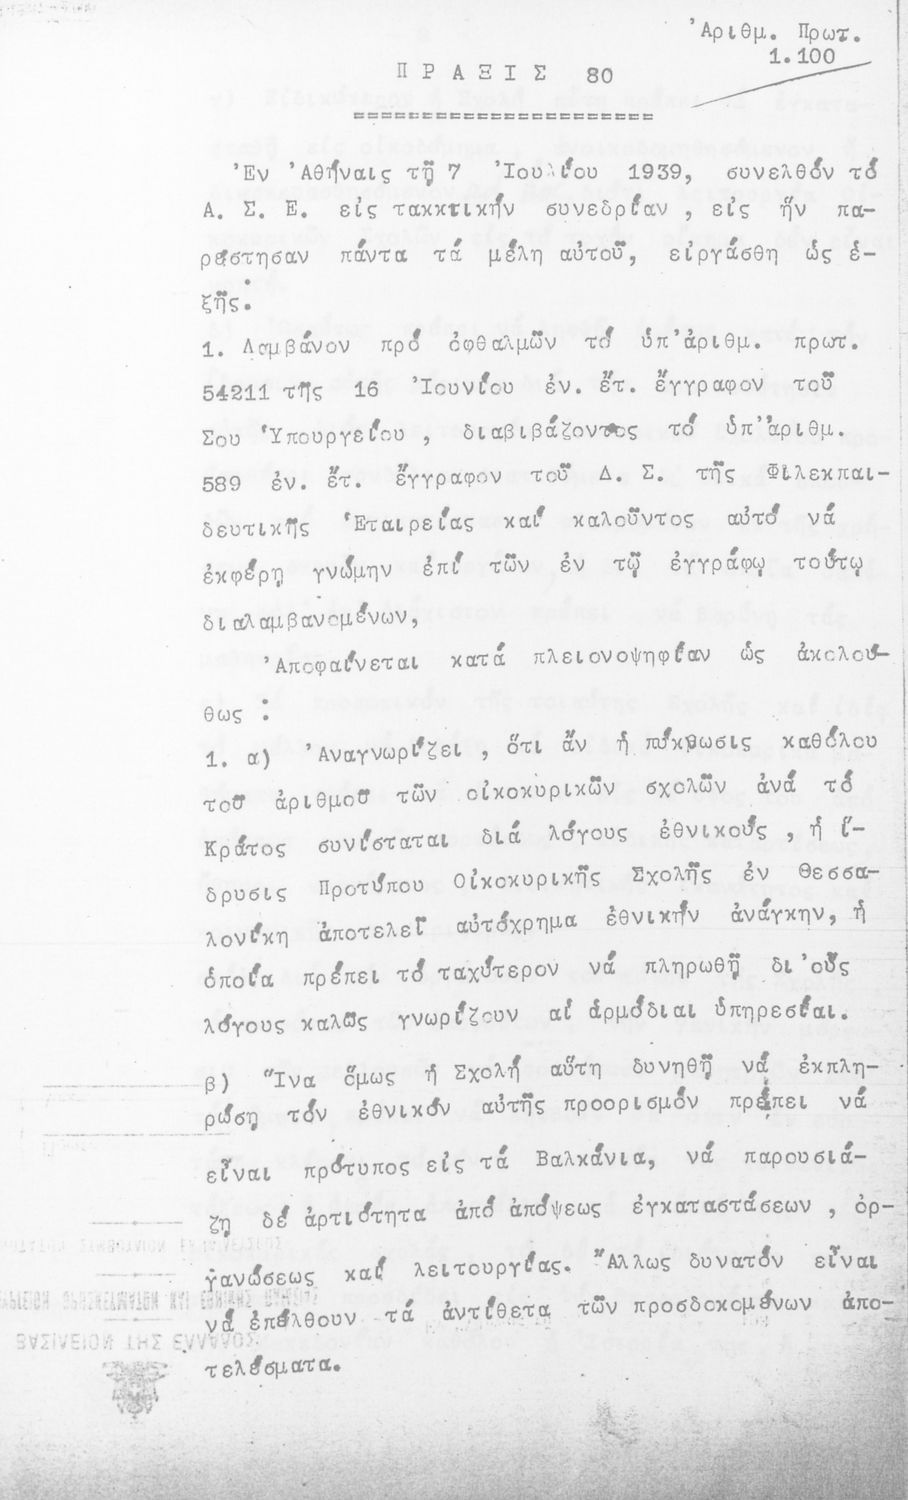 Ἀριθμ. Πρωτ.
1.100
Π Ρ Α Ξ Ι Σ 80
======================
Ἐν Ἀθήναις τῇ 7 Ἰουλίου 1939, συνελθόν τό
Α. Σ. Ε. εἰς τακκτικήν συνεδρίαν, εἰς ἥν πα-
ρέστησαν πάντα τά μέλη αὐτοῦ, εἰργάσθη ὡς ἑ-
ξῆς:
1. Λαμβάνον πρό ὀφθαλμῶν τό ὑπ'ἀριθμ. πρωτ.
54211 τῆς 16 Ἰουνίου ἐν. ἔτ. ἔγγραφον τοῦ
Σου Ὑπουργείου, διαβιβάζοντος τό ὑπ'ἀριθμ.
589 ἐν. ἔτ. ἔγγραφον τοῦ Δ. Σ. τῆς Φιλεκπαι-
δευτικῆς Ἑταιρείας καί καλοῦντος αὐτό νά
ἐκφέρῃ γνώμην ἐπί τῶν ἐν τῷ ἐγγράφῳ τούτῳ
διαλαμβανομένων,
Ἀποφαίνεται κατά πλειονοψηφίαν ὡς ἀκολού-
θως :
1. α) Ἀναγνωρίζει, ὅτι ἄν ἡ πύκνωσις καθόλου
τοῦ ἀριθμοῦ τῶν οἰκοκυρικῶν σχολῶν ἀνά τό
Κράτος συνίσταται διά λόγους ἐθνικούς, ἡ ἵ-
δρυσις Προτύπου Οἰκοκυρικῆς Σχολῆς ἐν Θεσσα-
λονίκῃ ἀποτελεῖ αὐτόχρημα ἐθνικήν ἀνάγκην, ἡ
ὁποία πρέπει τό ταχύτερον νά πληρωθῇ δι'οὕς
λόγους καλῶς γνωρίζουν αἱ ἁρμόδιαι ὑπηρεσίαι.
β) Ἵνα ὅμως ἡ Σχολή αὕτη δυνηθῇ νά ἐκπλη-
ρώσῃ τόν ἐθνικόν αὐτῆς προορισμόν πρέπει νά
εἶναι πρότυπος εἰς τά Βαλκάνια, νά παρουσιά-
ζῃ δέ ἀρτιότητα ἀπό ἀπόψεως ἐγκαταστάσεων, ὀρ-
γανώσεως καί λειτουργίας. Ἄλλως δυνατόν εἶναι
νά ἐπέλθουν τά ἀντίθετα τῶν προσδοκομένων ἀπο-
τελέσματα.
ΒΑΣΙΛΕΙΟΝ ΤΗΣ ΕΛΛΑΔΟΣ